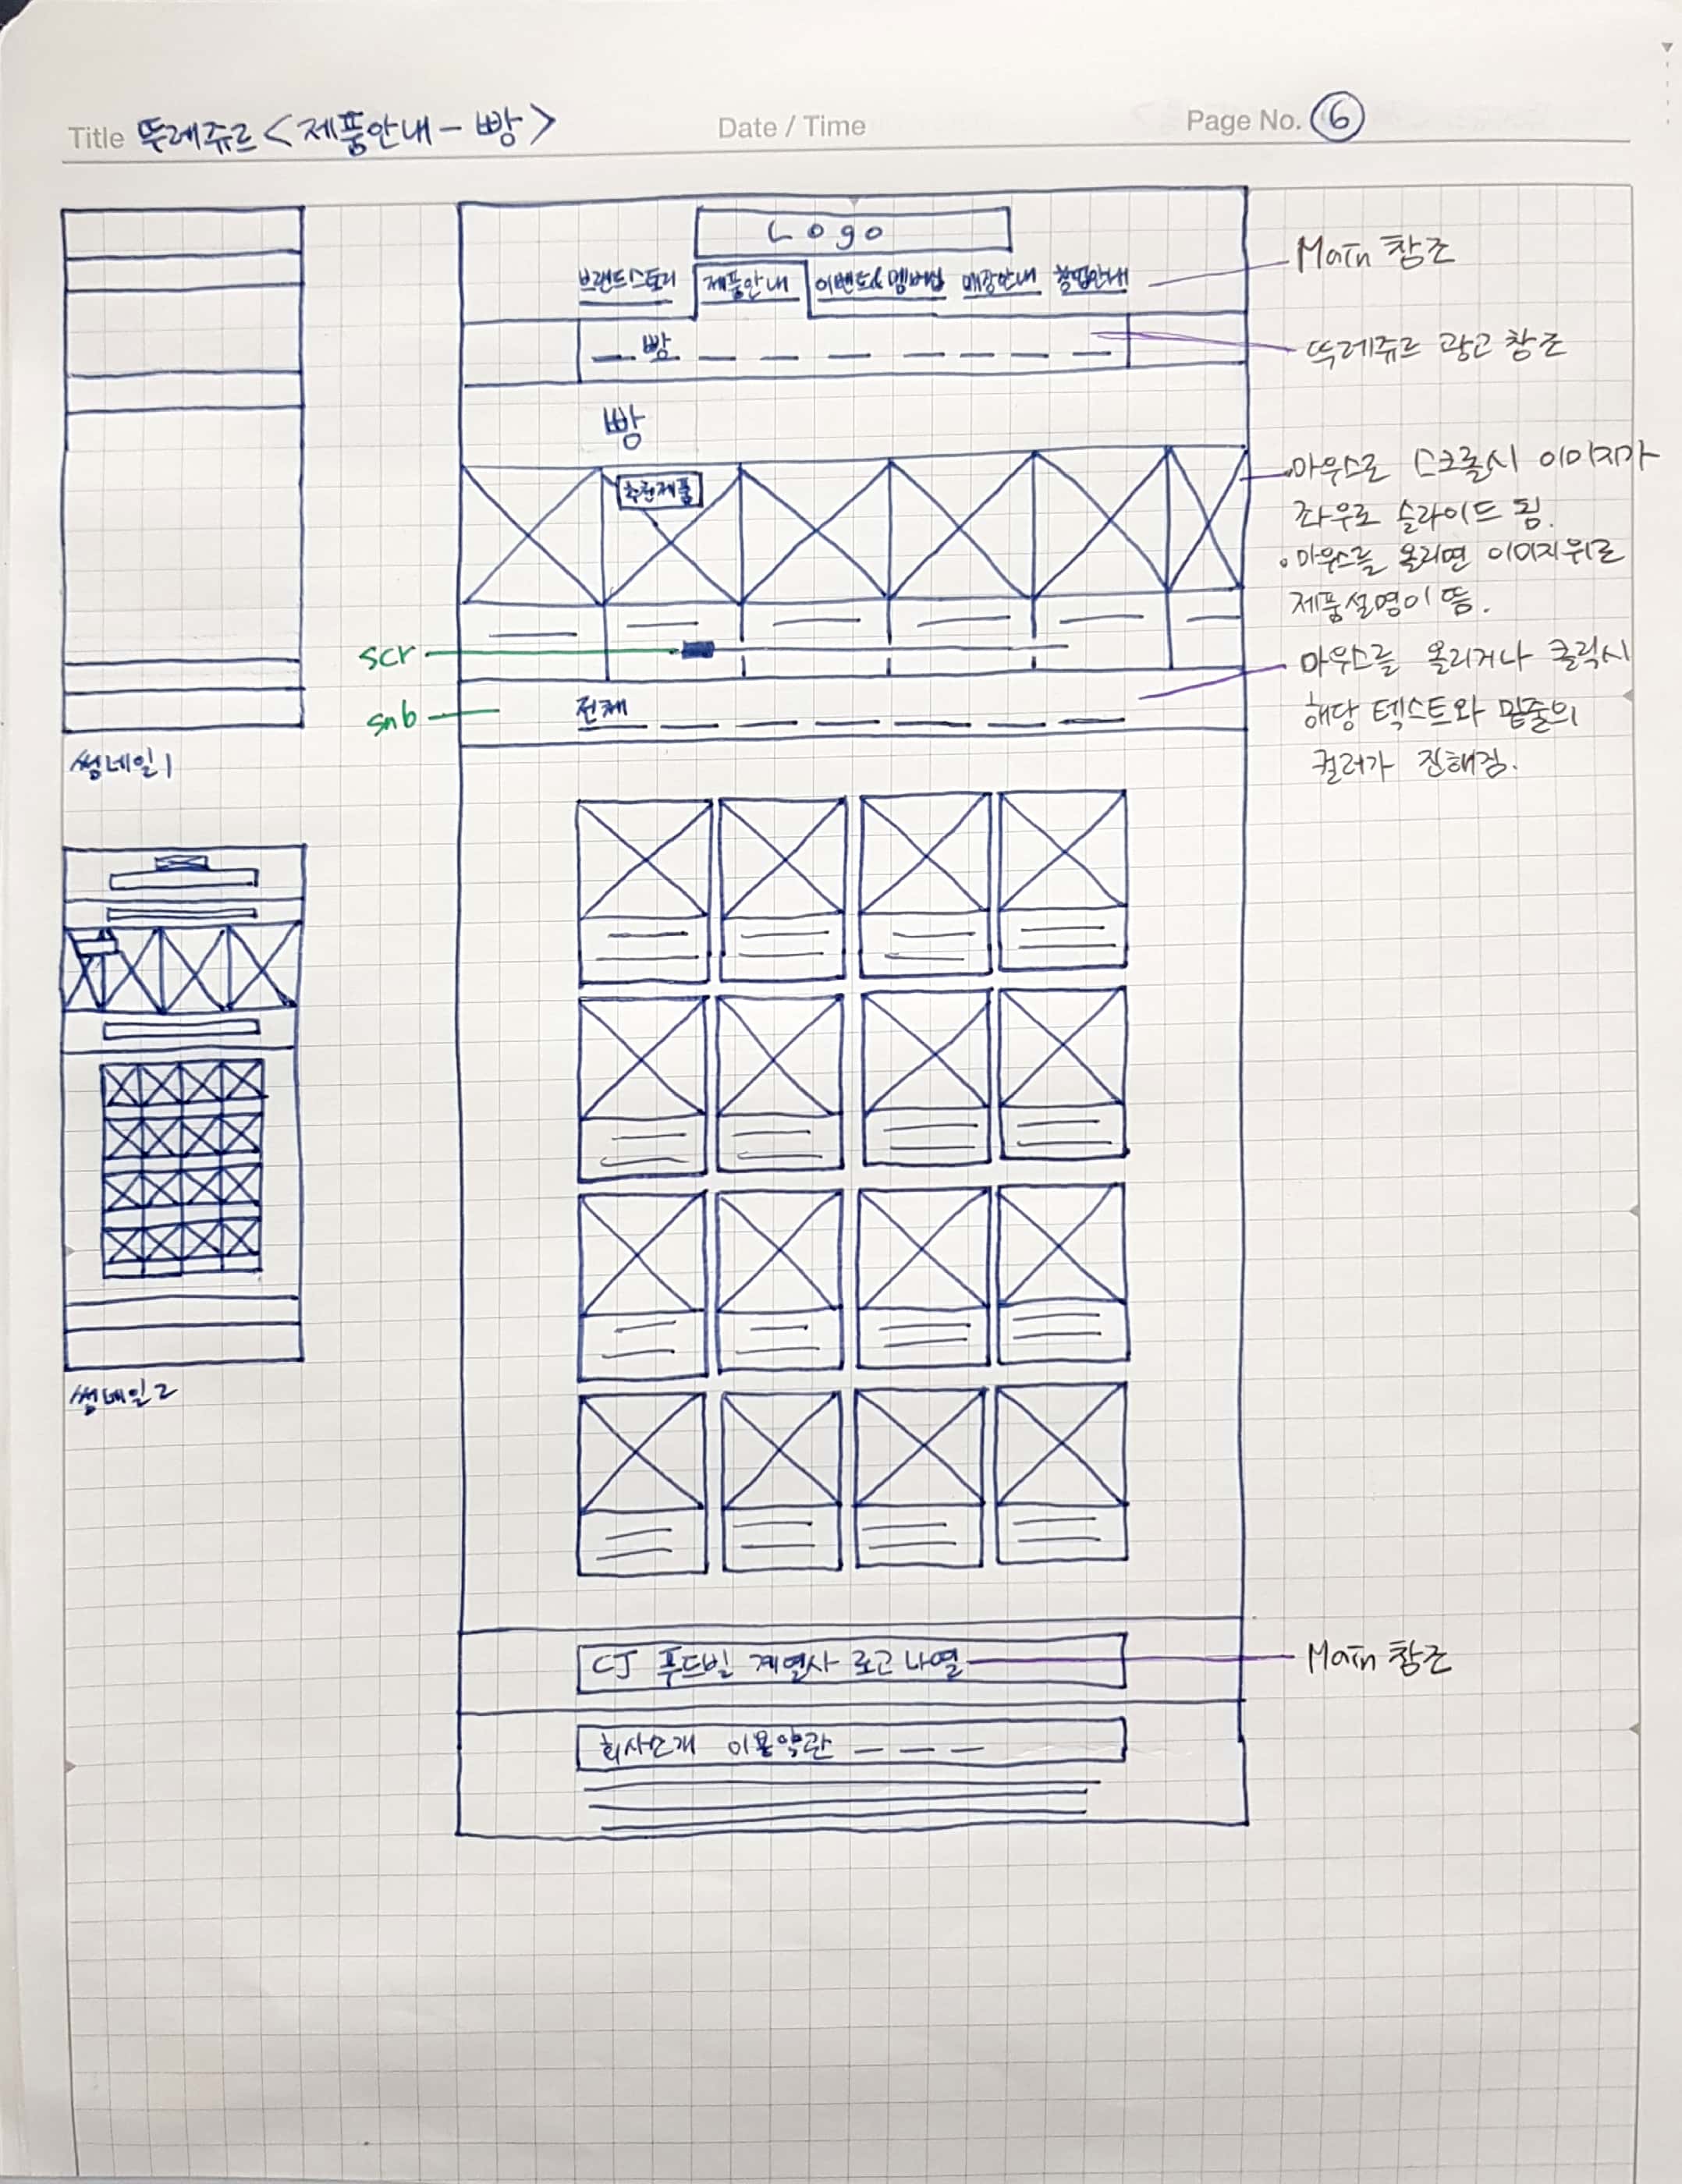 Title 뚜레쥬르 <제품안내 - 빵>
Date / Time
Page No. 6
Logo
브랜드스토리 제품안내 이벤트&멤버쉽 매장안내 창업안내
Main 참조
빵
뚜레쥬르 광고 참조
빵
추천제품
마우스로 스크롤시 이미지가
좌우로 슬라이드 됨.
마우스를 올리면 이미지위로
제품설명이 뜸.
scr
마우스를 올리거나 클릭시
해당 텍스트와 밑줄의
컬러가 진해짐.
snb
전체
썸네일1
썸네일2
CJ 푸드빌 계열사 로고 나열
Main 참조
회사소개 이용약관